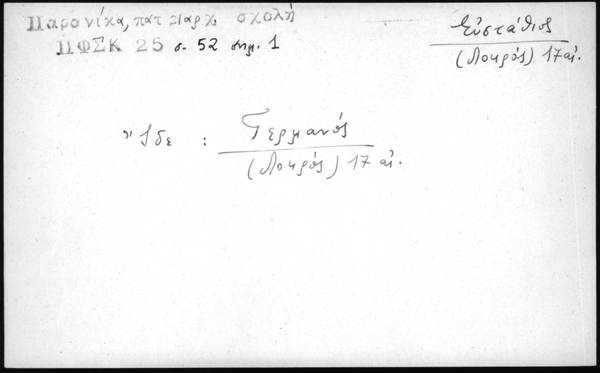 Παρονίκα, πατριαρχ. σχολή
ΠΦΣΚ 25 σ. 52 σημ. 1
Εὐστάθιος
(Λοκρός) 17 αἰ.
Ἴδε : Γερμανός
(Λοκρός) 17 αἰ.